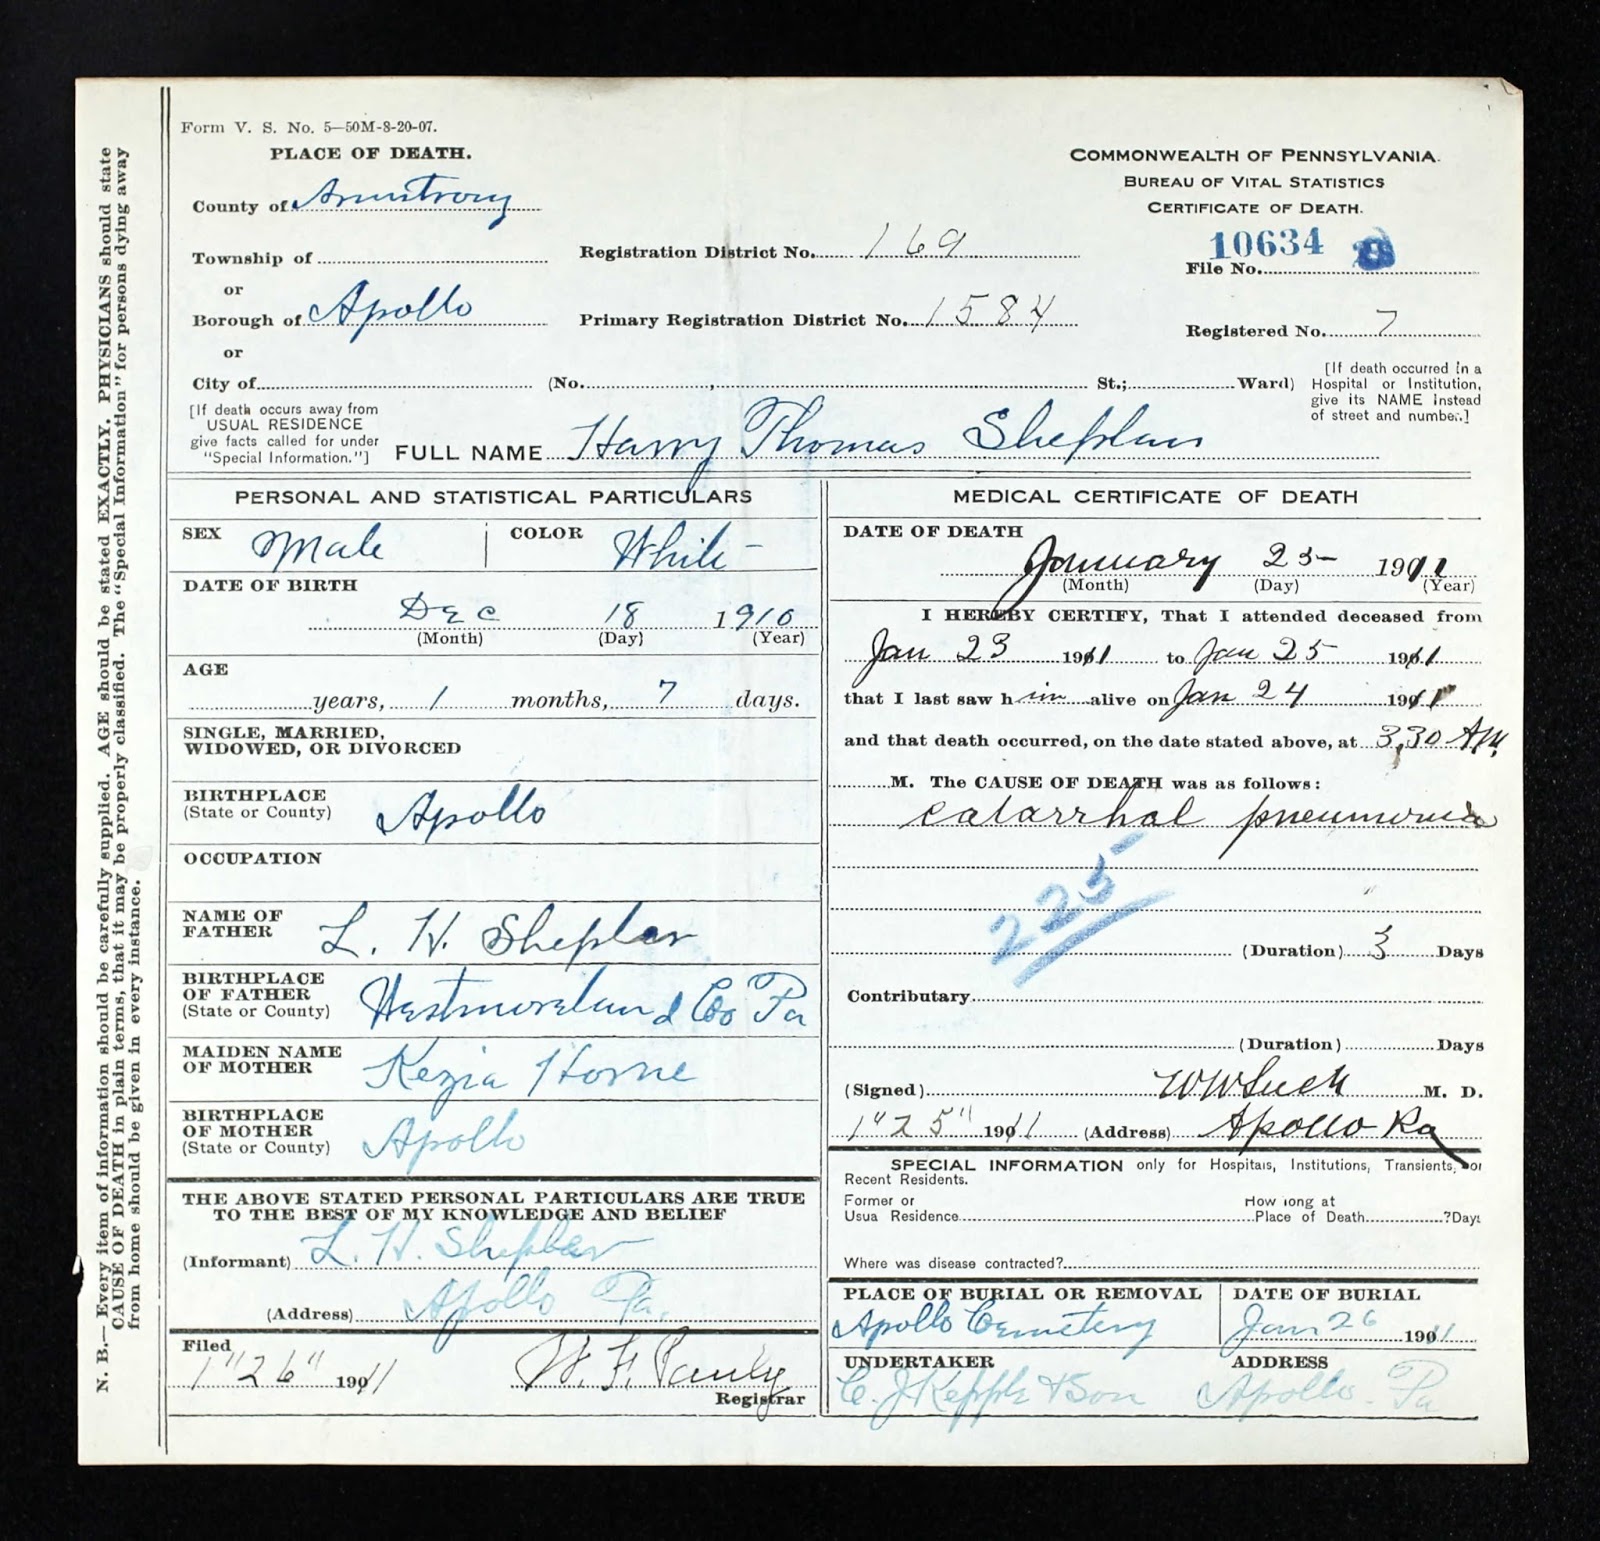 Form V. S. No. 5—50M-8-20-07.
PLACE OF DEATH.
County of Armstrong
Township of
or
Borough of Apollo
or
City of (No. , St.; Ward)
COMMONWEALTH OF PENNSYLVANIA.
BUREAU OF VITAL STATISTICS
CERTIFICATE OF DEATH.
Registration District No. 169
10634
File No.
Primary Registration District No. 1584
Registered No. 7
[If death occurred in a
Hospital or Institution,
give its NAME instead
of street and number.]
[If death occurs away from
USUAL RESIDENCE
give facts called for under
"Special Information."]
FULL NAME Harry Thomas Sheplar
PERSONAL AND STATISTICAL PARTICULARS
SEX Male COLOR White
DATE OF BIRTH
Dec 18 1910
(Month) (Day) (Year)
AGE
years, 1 months, 7 days.
SINGLE, MARRIED,
WIDOWED, OR DIVORCED
BIRTHPLACE
(State or County) Apollo
OCCUPATION
NAME OF
FATHER L. H. Sheplar
BIRTHPLACE
OF FATHER
(State or County) Westmoreland Co Pa
MAIDEN NAME
OF MOTHER Kezia Horne
BIRTHPLACE
OF MOTHER
(State or County) Apollo
THE ABOVE STATED PERSONAL PARTICULARS ARE TRUE
TO THE BEST OF MY KNOWLEDGE AND BELIEF
(Informant) L. H. Sheplar
(Address) Apollo Pa.
Filed
1"26" 1911 W. F. Pauly
Registrar
MEDICAL CERTIFICATE OF DEATH
DATE OF DEATH
January 25 1911
(Month) (Day) (Year)
I HEREBY CERTIFY, That I attended deceased from
Jan 23 1911 to Jan 25 1911
that I last saw him alive on Jan 24 1911
and that death occurred, on the date stated above, at 3.30 AM.
M. The CAUSE OF DEATH was as follows:
catarrhal pneumonia
225
(Duration) 3 Days
Contributary
(Duration) Days
(Signed) M. D.
1"25" 1911 (Address) Apollo Pa
SPECIAL INFORMATION only for Hospitals, Institutions, Transients, or
Recent Residents.
Former or How long at
Usua Residence Place of Death ?Days
Where was disease contracted?
PLACE OF BURIAL OR REMOVAL DATE OF BURIAL
Apollo Cemetery Jan 26 1911
UNDERTAKER ADDRESS
C. J. Kepple & Son Apollo Pa
N. B.—Every item of information should be carefully supplied. AGE should be stated EXACTLY. PHYSICIANS should state
CAUSE OF DEATH in plain terms, that it may be properly classified. The "Special Information" for persons dying away
from home should be given in every instance.